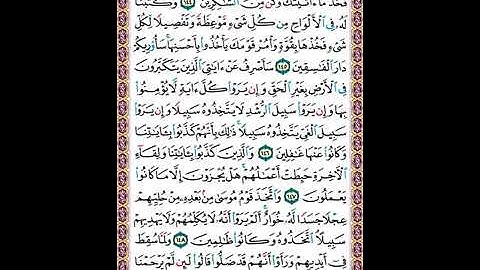 فَخُذْ مَا ءَاتَيْتُكَ وَكُن مِّنَ الشَّـٰكِرِينَ ١٤٤ وَكَتَبْنَا
لَهُۥ فِى الْأَلْوَاحِ مِن كُلِّ شَىْءٍ مَّوْعِظَةً وَتَفْصِيلًا لِّكُلِّ
شَىْءٍ فَخُذْهَا بِقُوَّةٍ وَأْمُرْ قَوْمَكَ يَأْخُذُوا۟ بِأَحْسَنِهَا سَأُو۟رِيكُمْ
دَارَ الْفَـٰسِقِينَ ١٤٥ سَأَصْرِفُ عَنْ ءَايَـٰتِىَ الَّذِينَ يَتَكَبَّرُونَ
فِى الْأَرْضِ بِغَيْرِ الْحَقِّ وَإِن يَرَوْا۟ كُلَّ ءَايَةٍ لَّا يُؤْمِنُوا۟
بِهَا وَإِن يَرَوْا۟ سَبِيلَ الرُّشْدِ لَا يَتَّخِذُوهُ سَبِيلًا وَإِن يَرَوْا۟
سَبِيلَ الْغَىِّ يَتَّخِذُوهُ سَبِيلًا ذَٰلِكَ بِأَنَّهُمْ كَذَّبُوا۟ بِـَٔايَـٰتِنَا
وَكَانُوا۟ عَنْهَا غَـٰفِلِينَ ١٤٦ وَالَّذِينَ كَذَّبُوا۟ بِـَٔايَـٰتِنَا وَلِقَآءِ
الْـَٔاخِرَةِ حَبِطَتْ أَعْمَـٰلُهُمْ هَلْ يُجْزَوْنَ إِلَّا مَا كَانُوا۟
يَعْمَلُونَ ١٤٧ وَاتَّخَذَ قَوْمُ مُوسَىٰ مِنۢ بَعْدِهِۦ مِنْ حُلِيِّهِمْ
عِجْلًا جَسَدًا لَّهُۥ خُوَارٌ أَلَمْ يَرَوْا۟ أَنَّهُۥ لَا يُكَلِّمُهُمْ وَلَا يَهْدِيهِمْ
سَبِيلًا اتَّخَذُوهُ وَكَانُوا۟ ظَـٰلِمِينَ ١٤٨ وَلَمَّا سُقِطَ
فِىٓ أَيْدِيهِمْ وَرَأَوْا۟ أَنَّهُمْ قَدْ ضَلُّوا۟ قَالُوا۟ لَئِن لَّمْ يَرْحَمْنَا